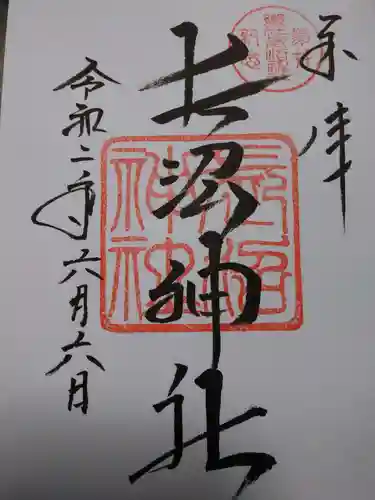 奉拝
長沼神社
令和二年六月六日
長沼神社